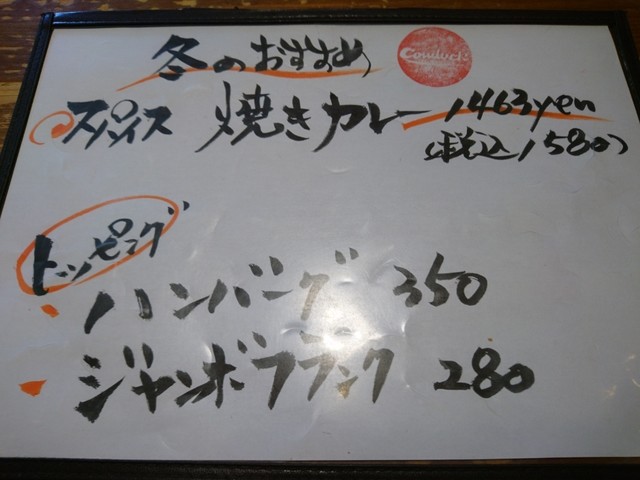 冬のおすすめ
Conduct
スパイス 焼きカレー 1463yen
(税込1580)
トッピング
ハンバーグ 350
ジャンボフランク 280